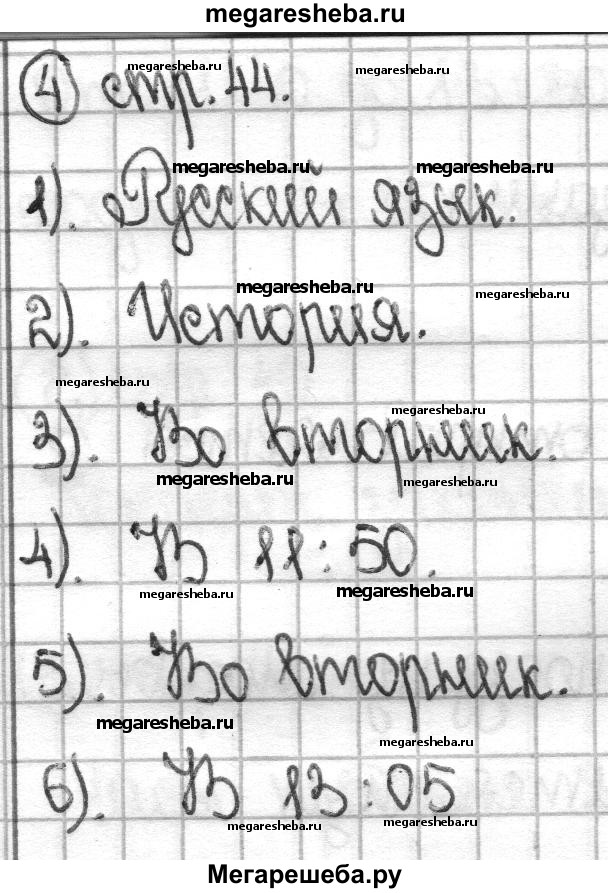 megaresheba.ru
megaresheba.ru
megaresheba.ru
4 стр. 44.
megaresheba.ru
megaresheba.ru
1). Русский язык.
megaresheba.ru
megaresheba.ru
2). История.
megaresheba.ru
megaresheba.ru
3). Во вторник.
megaresheba.ru
megaresheba.ru
4). В 11:50.
megaresheba.ru
megaresheba.ru
5). Во вторник.
megaresheba.ru
megaresheba.ru
6). В 13:05
megaresheba.ru
megaresheba.ru
Мегарешеба.ру